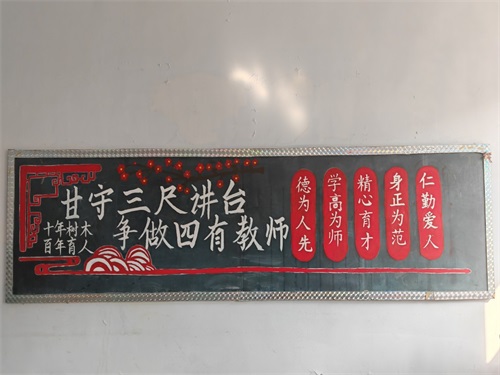 甘守三尺讲台
争做四有教师
十年树木
百年育人
德为人先
学高为师
精心育才
身正为范
仁勤爱人